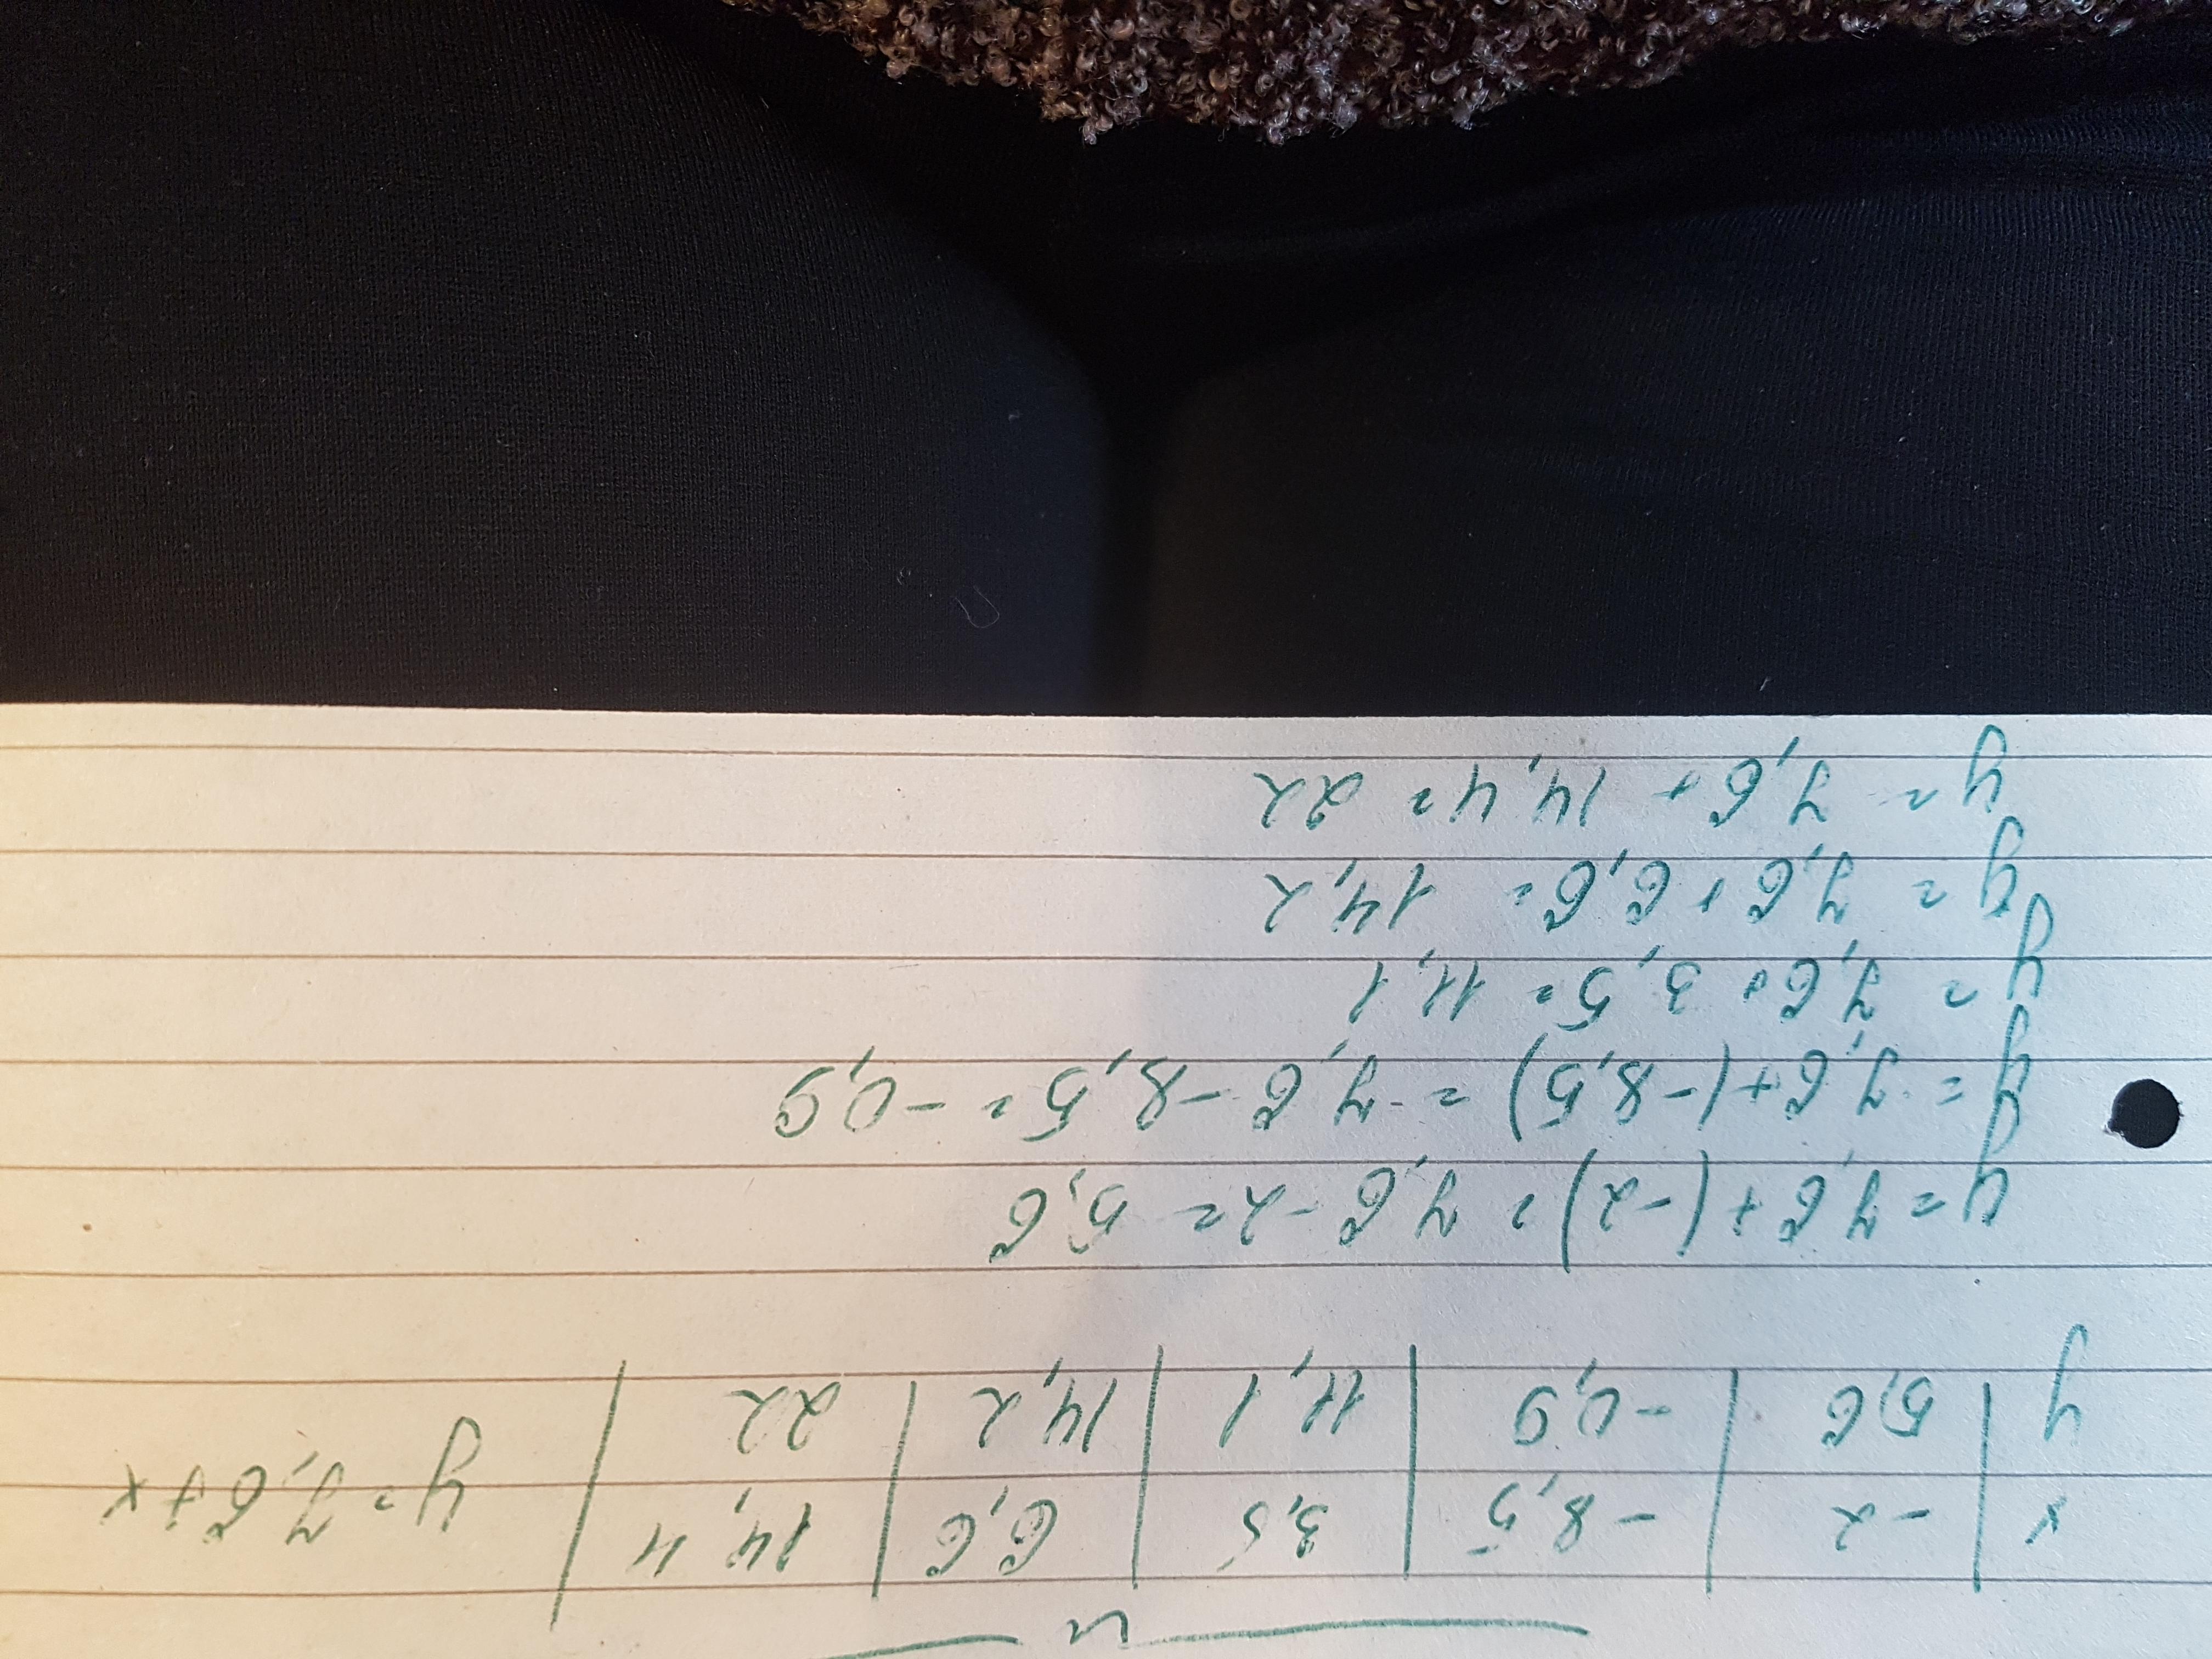 x | -2 | -8,5 | 3,5 | 6,6 | 14,4 | y=7,6+x
y | 5,6 | -0,9 | 11,1 | 14,2 | 22 |
y=7,6+(-2)=7,6-2=5,6
y=7,6+(-8,5)=7,6-8,5=-0,9
y=7,6+3,5=11,1
y=7,6+6,6=14,2
y=7,6+14,4=22